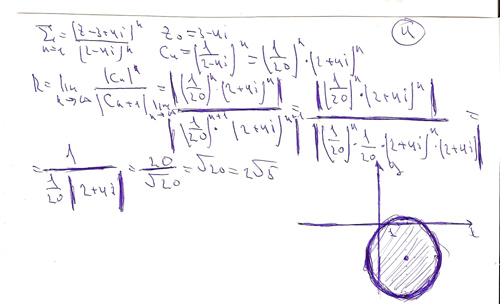 Σ n=1 [z-3+4i]^n / [2-4i]^n   z₀=3-4i   4
Cn=(1/(2-4i))^n=(1/20)^n·(2+4i)^n
R=lim n→∞ |Cn|/|Cn+1| = lim n→∞ |(1/20)^n·(2+4i)^n| / |(1/20)^(n+1)·(2+4i)^(n+1)| = |(1/20)^n·(2+4i)^n| / |(1/20)^n·1/20·(2+4i)^n·(2+4i)| =
= 1 / (1/20 |2+4i|) = 20/√20 = √20 = 2√5
y